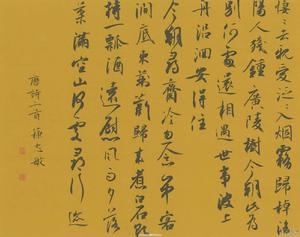 悽々去親愛泛々入烟霧歸棹洛
陽人殘鍾廣陵樹今朝此為
別何處還相遇世事波上
舟沿洄安得住
今朝郡齋冷忽念山中客
澗底束荊薪歸來煮白石欲
持瓢酒遠慰風雨夕落
葉滿空山何處尋行迹
唐詩二首